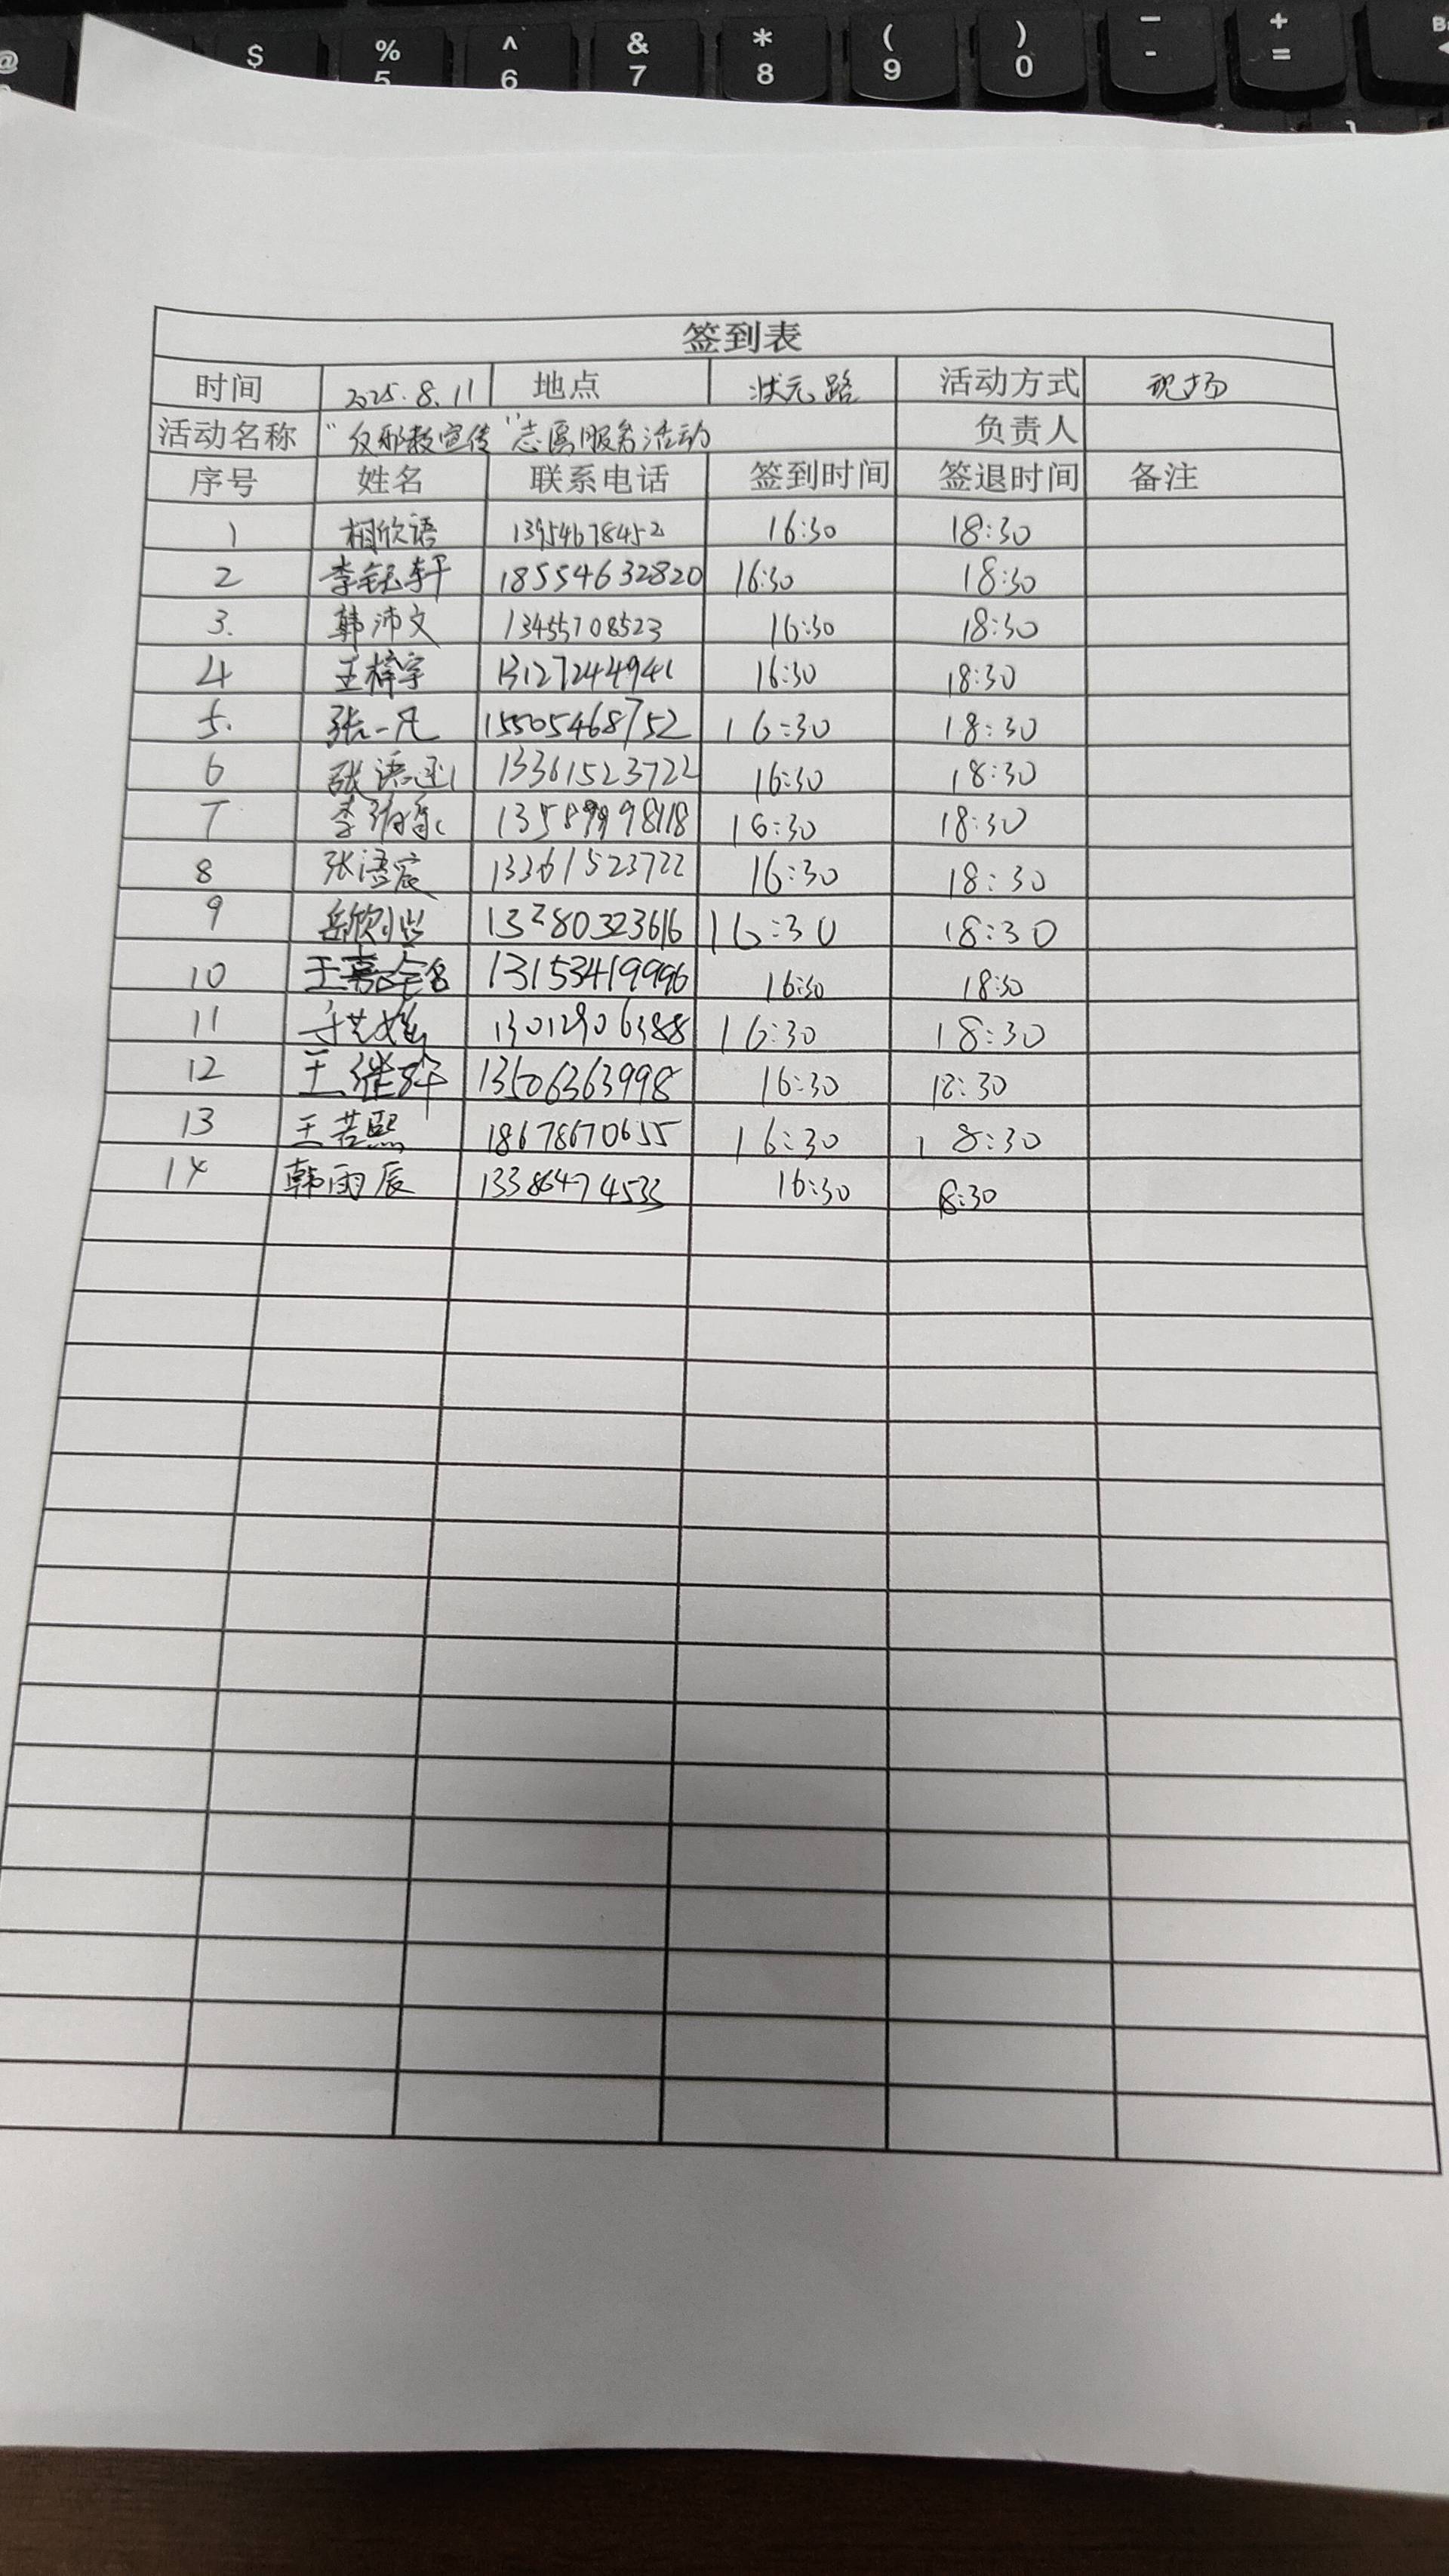 @ $ % ^ & * ( ) - +
5 6 7 8 9 0 - =
签到表
时间 2025.8.11 地点 状元路 活动方式 现场
活动名称 “反邪教宣传”志愿服务活动 负责人
序号 姓名 联系电话 签到时间 签退时间 备注
1 相欣语 13954678452 16:30 18:30
2 李钰轩 18554632820 16:30 18:30
3. 韩沛文 13455708523 16:30 18:30
4 王梓宇 13127244941 16:30 18:30
5. 张一凡 15505468752 16:30 18:30
6 张语 13361523722 16:30 18:30
7 李 16:30 18:30
8 张语宸 13361523722 16:30 18:30
9 岳欣 13280323616 16:30 18:30
10 王嘉 13153419996 16:30 18:30
11 13012906388 16:30 18:30
12 王 13506363998 16:30 18:30
13 王若熙 18678670655 16:30 18:30
14 韩雨辰 13386474533 16:30 18:30